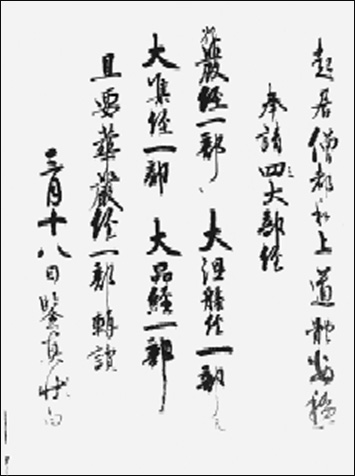 起居僧都和上道體穩
奉請四大部經
華嚴經一部大涅槃經一部
大集經一部大品經一部
且要華嚴經一部轉讀
三月十八日鑒真狀白